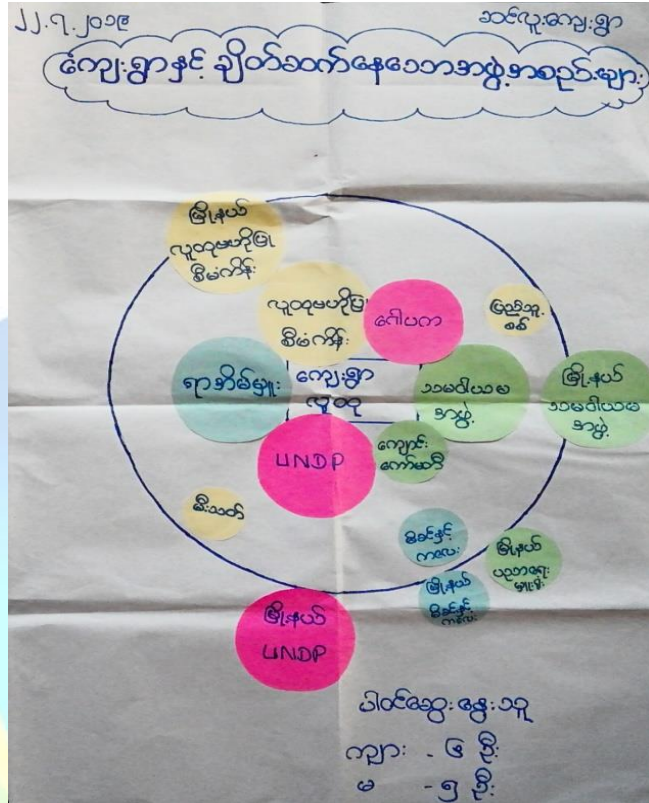 ၂၂.၇.၂၀၁၉
ဆင်လူးကျေးရွာ
ကျေးရွာနှင့် ချိတ်ဆက်နေသောအဖွဲ့အစည်းများ
မြို့နယ်
လူထုဗဟိုပြု
စီမံကိန်း
လူထုဗဟိုပြု
စီမံကိန်း
ဂေါပက
ပြည်သူ့
စစ်
ရာအိမ်မှူး
ကျေးရွာ
လူထု
သမဝါယမ
အဖွဲ့
မြို့နယ်
သမဝါယမ
အဖွဲ့
UNDP
ကျောင်း
ကော်မတီ
မီးသတ်
မိခင်နှင့်
ကလေး
မြို့နယ်
ပညာရေး
မှူးရုံး
မြို့နယ်
မိခင်နှင့်
ကလေး
မြို့နယ်
UNDP
ပါဝင်ဆွေးနွေးသူ
ကျား - ၆ ဦး
မ - ၅ ဦး